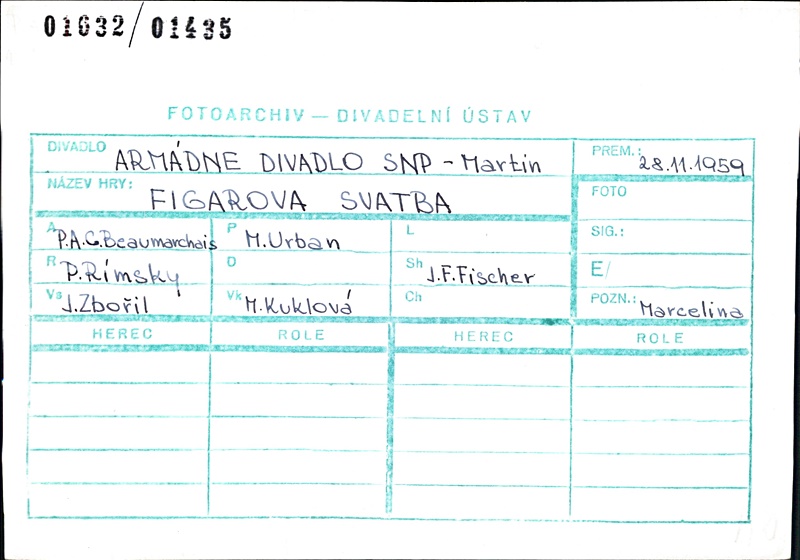 01632/01435
FOTOARCHIV — DIVADELNÍ ÚSTAV
DIVADLO ARMÁDNE DIVADLO SNP - Martin
PREM.: 28.11.1959
NÁZEV HRY: FIGAROVA SVATBA
FOTO
A P.A.C.Beaumarchais
P M.Urban
L
SIG.:
R P.Rímský
D
Sh J.F.Fischer
E/
Vs J.Zbořil
Vk M.Kuklová
Ch
POZN.: Marcelina
HEREC ROLE HEREC ROLE